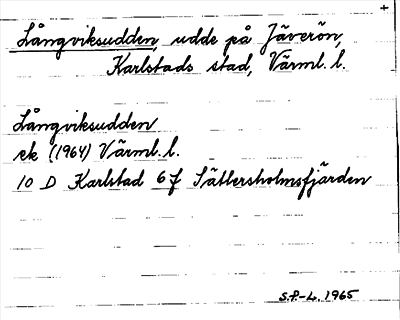 Långviksudden, udde på Jäverön,
Karlstads stad, Värml. l.
Långviksudden
ek (1964) Värml. l.
10 D Karlstad 6 f Sätersholmsfjärden
S.P.-L. 1965